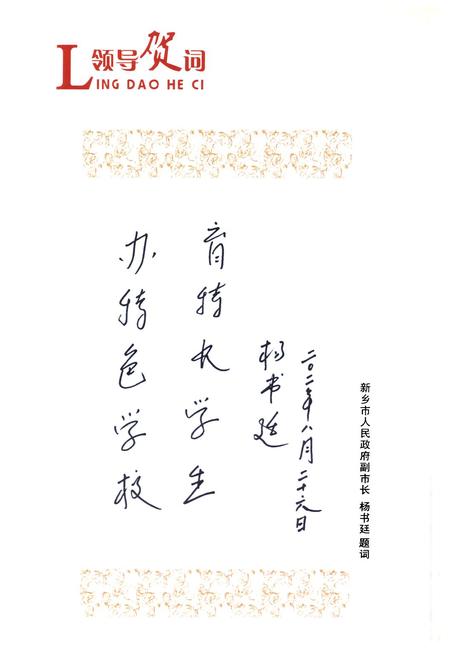 领导贺词
LING DAO HE CI
办特色学校
育特长学生
杨书廷
二〇一二年八月二十六日
新乡市人民政府副市长 杨书廷 题词